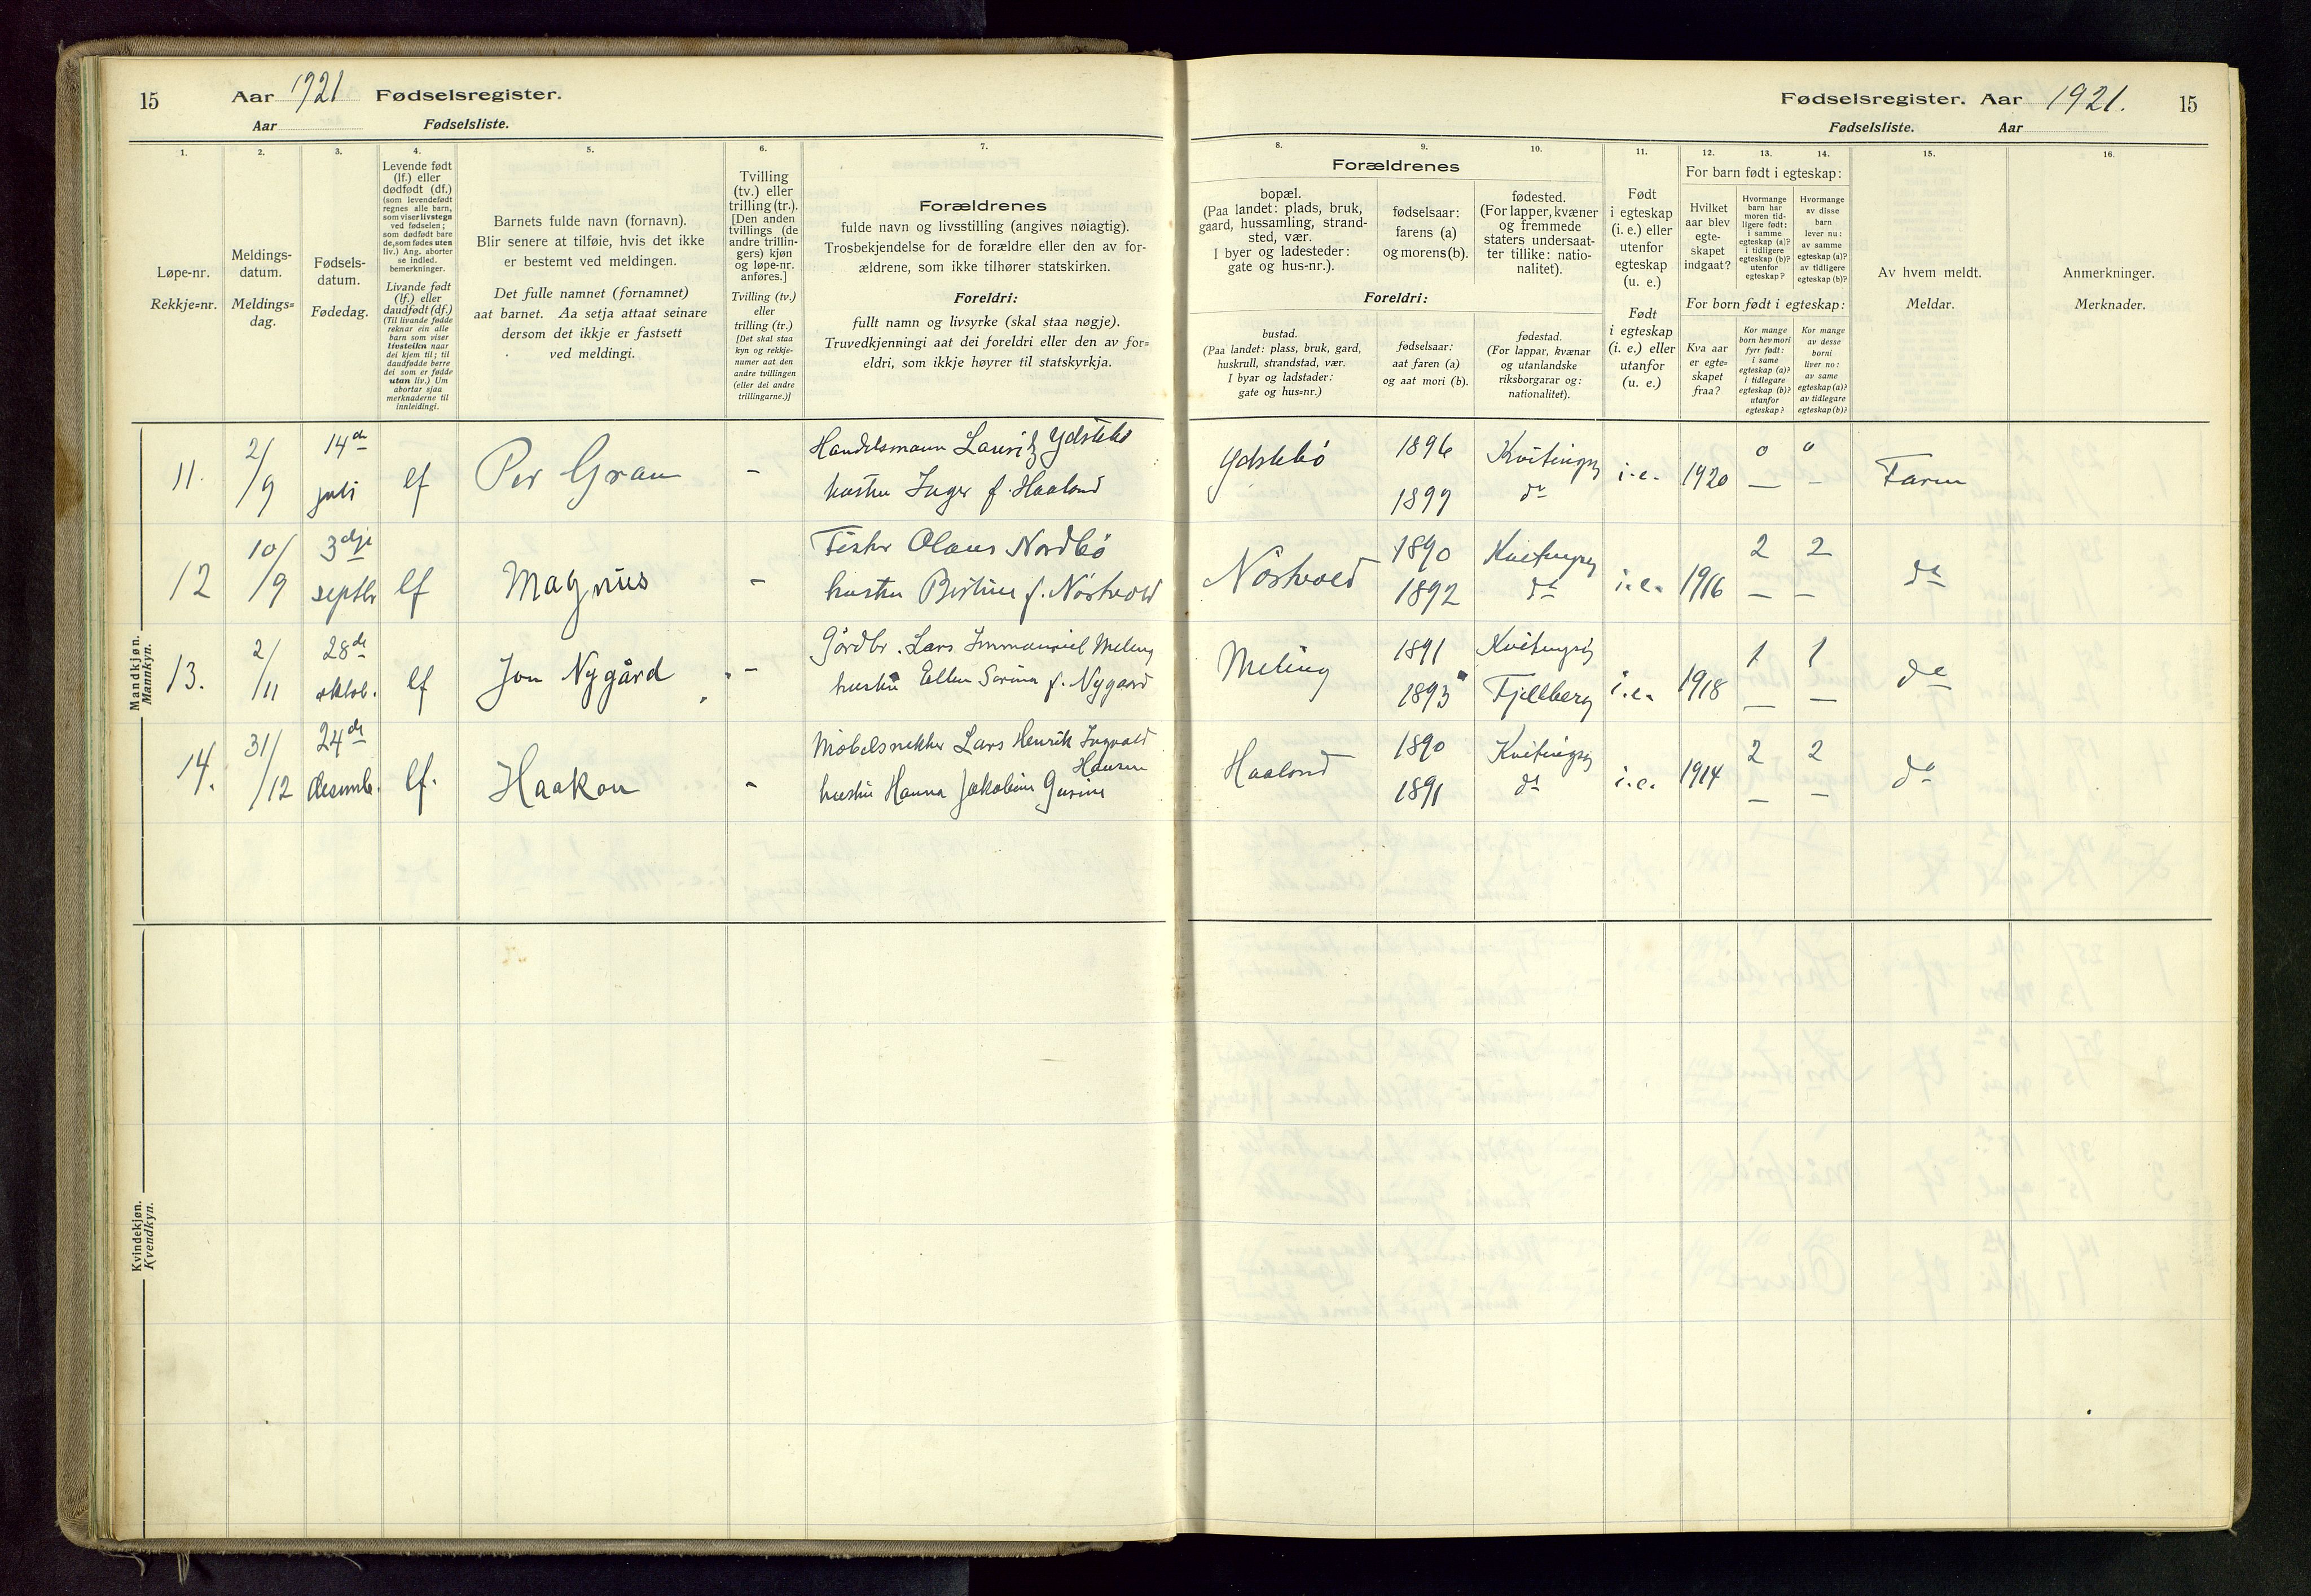 15 Aar 1921 Fødselsregister.
Aar Fødselsliste.
Fødselsregister. Aar 1921. 15
Fødselsliste. Aar
1.
Løpe-nr.
Rekkje=nr.
2.
Meldings-
datum.
Meldings=
dag.
3.
Fødsels-
datum.
Fødedag.
4.
Levende født
(lf.) eller
dødfødt (df.)
(som levendefødt
regnes alle barn,
som viser livstegn
ved fødselen;
som dødfødt bare
de, som fødes uten
liv.) Ang. aborter
se indled.
bemerkninger.
Livande født
(lf.) eller
daudfødt (df.)
(Til livande fødde
reknar ein alle
barn som viser
livsteikn naar
dei kjem til; til
daudfødde berre
dei som er fødde
utan liv.) Um
abortar sjaa
merknaderne til
innleidingi.
5.
Barnets fulde navn (fornavn).
Blir senere at tilføie, hvis det ikke
er bestemt ved meldingen.
Det fulle namnet (fornamnet)
aat barnet. Aa setja attaat seinare
dersom det ikkje er fastsett
ved meldingi.
6.
Tvilling
(tv.) eller
trilling (tr.).
[Den anden
tvillings (de
andre trillin-
gers) kjøn
og løpe-nr.
anføres.]
Tvilling (tv.)
eller
trilling (tr.)
[Det skal staa
kyn og rekkje-
numer aat den
andre tvillingen
(eller dei andre
trillingarne.)]
7.
Forældrenes
fulde navn og livsstilling (angives nøiagtig).
Trosbekjendelse for de forældre eller den av for-
ældrene, som ikke tilhører statskirken.
Foreldri:
fullt namn og livsyrke (skal staa nøgje).
Truvedkjenningi aat dei foreldri eller den av for=
eldri, som ikkje høyrer til statskyrkja.
8. 9. 10.
Forældrenes
bopæl.
(Paa landet: plads, bruk,
gaard, hussamling, strand-
sted, vær.
I byer og ladesteder:
gate og hus-nr.).
fødselsaar:
farens (a)
og morens (b).
fødested.
(For lapper, kvæner
og fremmede
staters undersaat-
ter tillike: natio-
nalitet).
Foreldri:
bustad.
(Paa landet: plass, bruk, gard,
huskrull, strandstad, vær.
I byar og ladstader:
gate og hus=nr.)
fødselsaar:
aat faren (a)
og aat mori (b).
fødestad.
(For lappar, kvænar
og utanlandske
riksborgarar og:
nationalitet).
11.
Født
i egteskap
(i. e.) eller
utenfor
egteskap
(u. e.)
Født
i egteskap
(i. e.) eller
utanfor
(u. e.)
12. 13. 14.
For barn født i egteskap:
Hvilket
aar blev
egte-
skapet
indgaat?
Hvormange
barn har
moren tid-
ligere født:
i samme
egteskap (a)?
i tidligere
egteskap (b)?
utenfor
egteskap?
Hvormange
av disse
barn
lever nu:
av samme
egteskap (a)?
av tidligere
egteskap (b)?
For born født i egteskap:
Kva aar
er egte-
skapet
fraa?
Kor mange
born hev mori
fyrr født:
i same
egteskap (a)?
i tidlegare
egteskap (b)?
utanfor
egteskap?
Kor mange
av desse
borni
liver no:
av same
egteskap (a)?
av tidlegare
egteskap (b)?
15.
Av hvem meldt.
Meldar.
16.
Anmerkninger.
Merknader.
Mandkjøn.
Mannkyn.
11. 2/9 14de juli lf Per Gran - Handelsmann Lauritz Ydstebø
hustru Inger f. Haaland
Ydstebø 1896 Kvitingsøy i.e. 1920 0 0 Faren
1899 do — -
12 10/9 3dje septbr lf Magnus - Fisker Olaus Nordbø
hustru Bertine f. Nøstvold
Nøstvold 1890 Kvitingsøy i.e. 1916 2 2 do
1892 do — —
13. 2/11 28de oktob. lf Jon Nygård - Gårdbr. Lars Immanuel Meling
hustru Ellen Serina f. Nygaard
Meling 1891 Kvitingsøy i.e. 1918 1 1 do
1893 Fjellberg — —
14. 31/12 24de desemb. lf. Haakon - Møbelsnekker Lars Henrik Ingvald
Hansen
hustru Hanna Jakobine Gurine
Haaland 1890 Kvitingsøy i.e. 1914 2 2 do
1891 do — —
Kvindekjøn.
Kvendkyn.